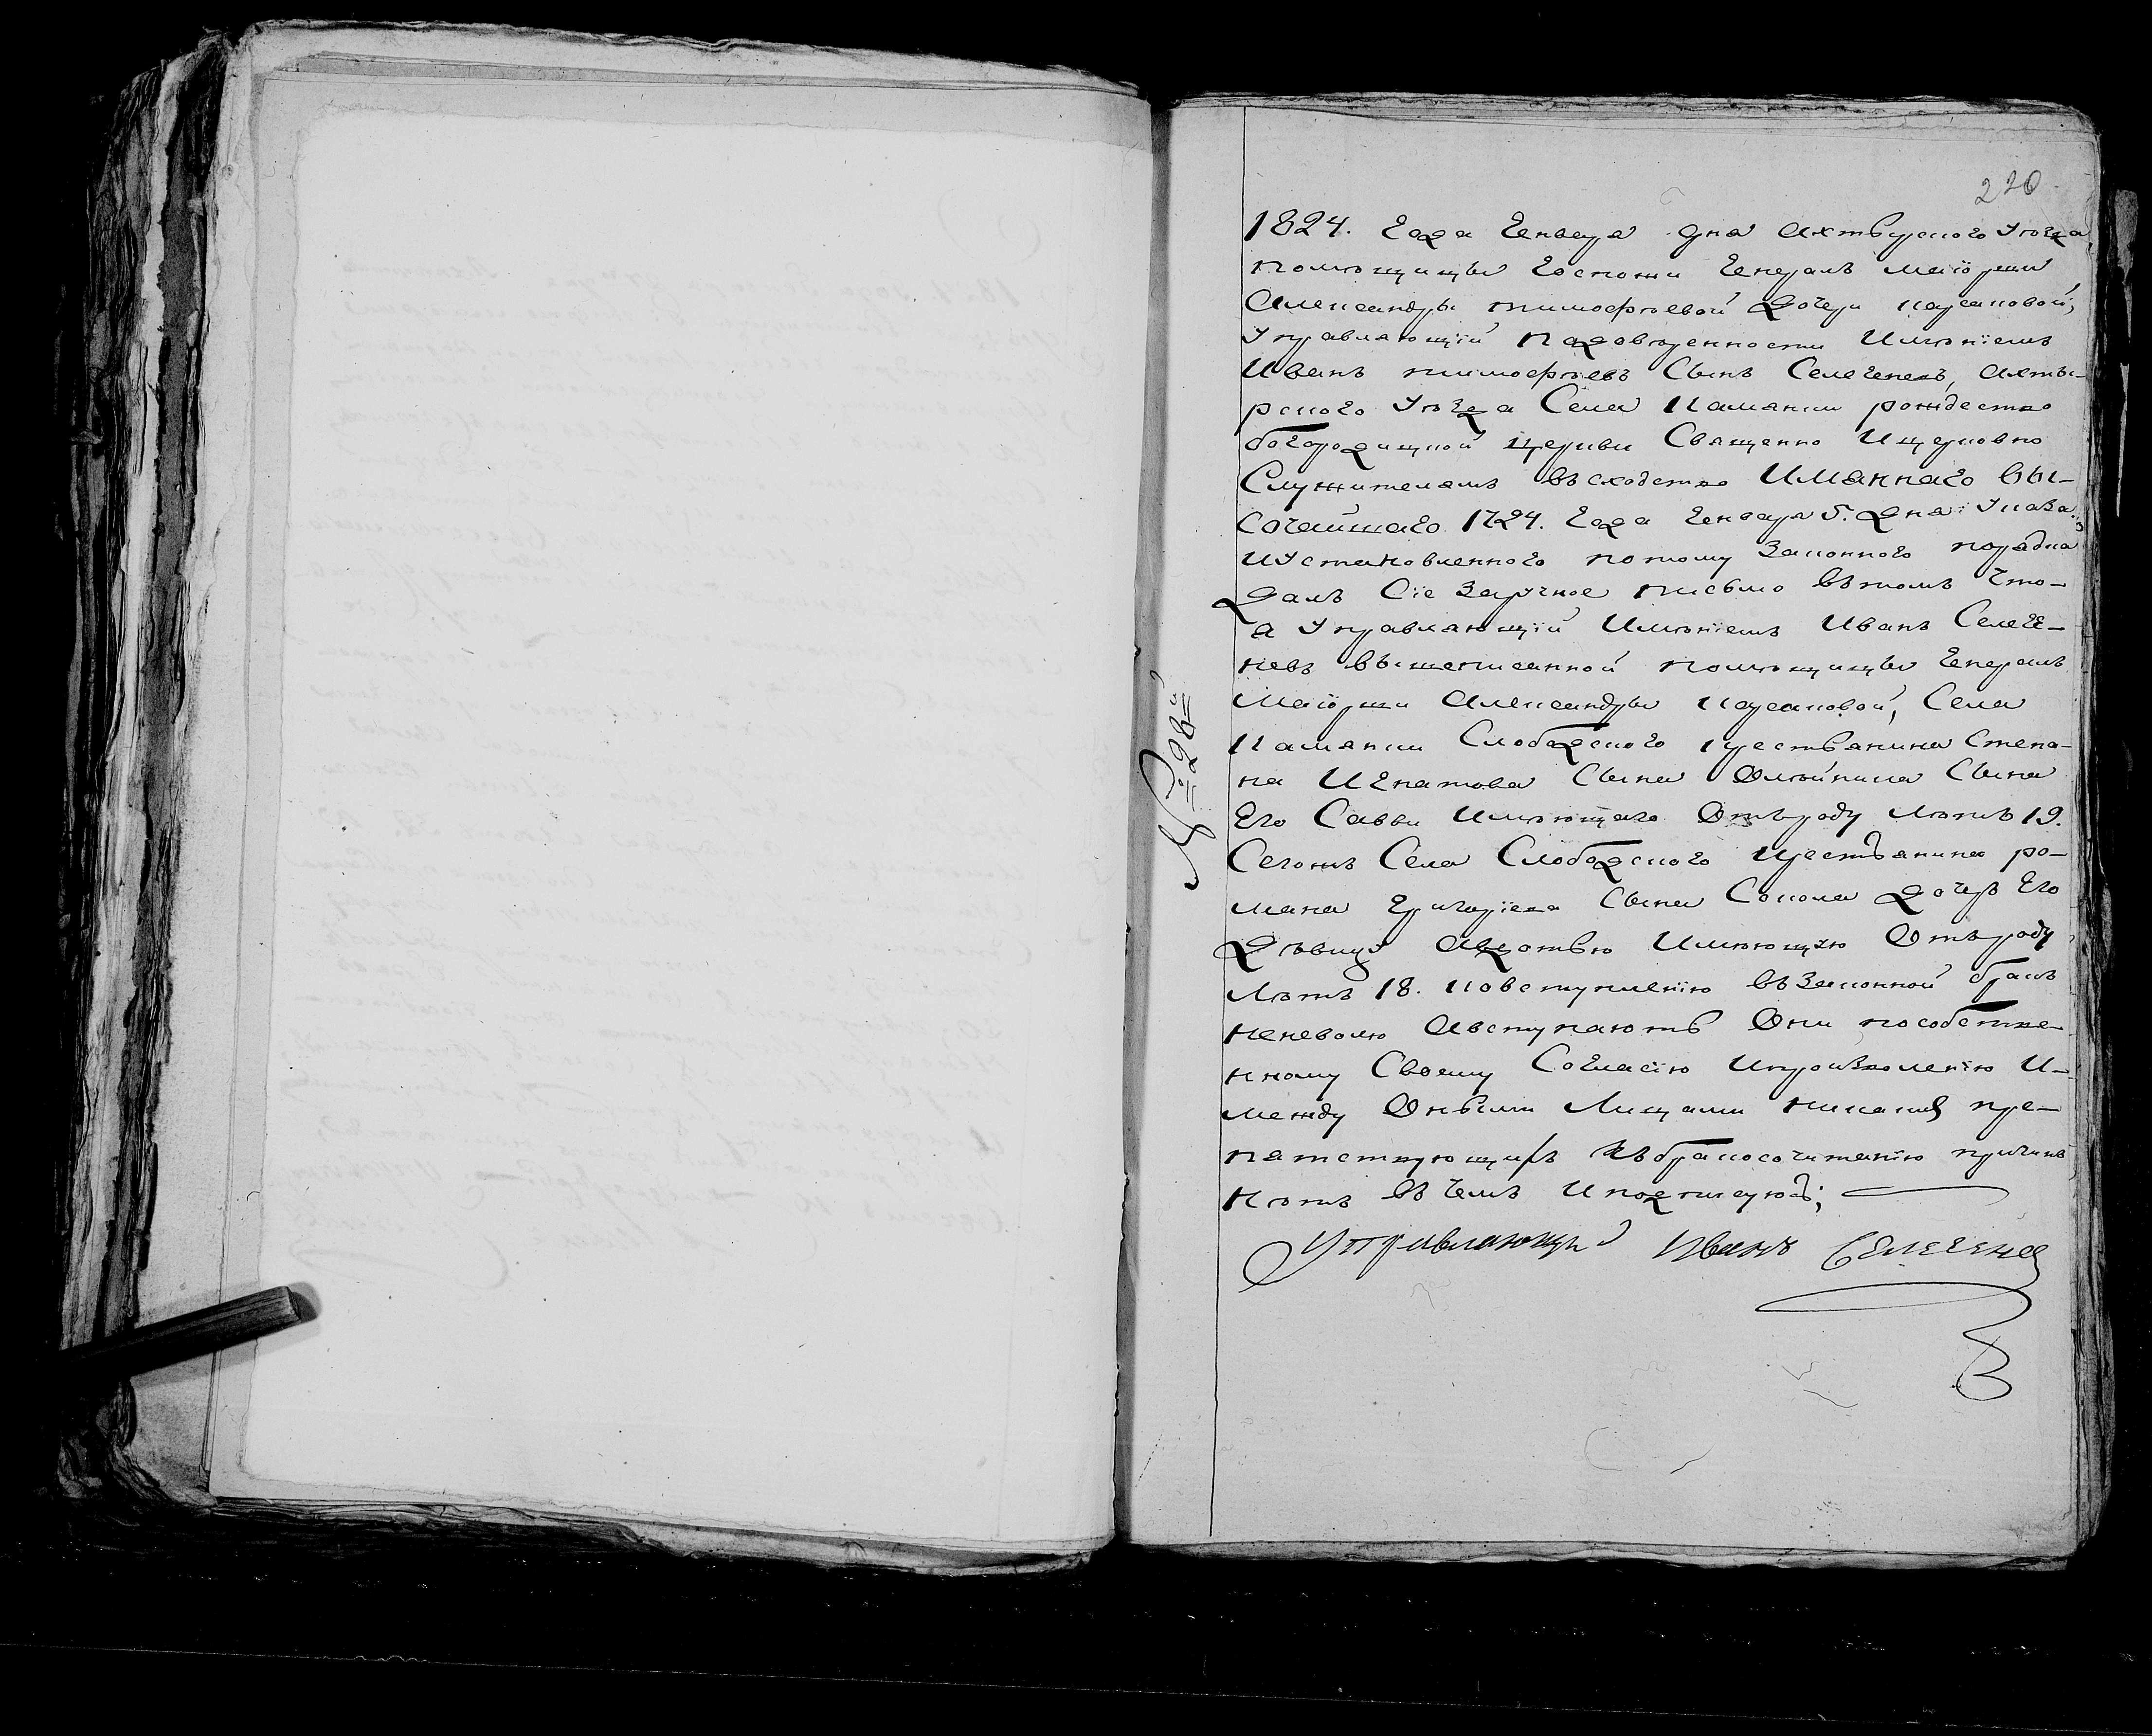 220
1824. Года Генваря дня Ахтырского Уѣзда
помѣщицы Госпожи Генералъ маіорши
Александры тимофѣевой дочери Карсаковой,
Управляющій Подовѣренности Имѣніемъ
Иванъ тимофѣевъ Сынъ Селегеневъ, Ахты-
рского Уѣзда Села Каменки рождество
богородицкой церкви Священно Ицерковно
Служителямъ въсходство Имяннаго Вы-
сочайшаго 1724. Года Генваря 5. дня Указа,
иУстановленного потому Законного порядка
далъ Сіе Заручное писмо втомъ Что-
я Управляющій Имѣніемъ Иванъ Селеге-
невъ вышеписанной помѣщицы Генералъ
Маіорши Александры Карсаковой, Села
Каменки Слободского крестьянина Степа-
на Игнатова Сына Олѣйника Сына
Его Савви Имѣющаго Отъроду Лѣтъ 19.
Сегожъ Села Слободского Крестьянина ро-
мана Григоріева Сына Сокола дочерь Его
дѣвицу Авдотью Имѣющую Отъроду
Лѣтъ 18. Ковступленію взаконной бракъ
неневолю Авступаютъ Они пособстве-
нному Своему Согласію Ипроизволенію И-
между Оными Лицами Никакихъ пре-
пятствующихъ Къбракосочитанію причинъ
Нѣтъ въ Чемъ Иподписуюсь;
Управляющий Иванъ Селегенев
№ 28й